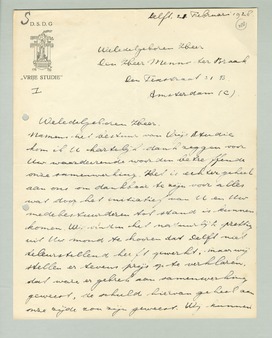 D.S.D.G
"VRIJE STUDIE"
I
Delft, 28 Februari 1926.
Weledelgeboren Heer
Den Heer Menno ter Braak
Den Texstraat 31 B
Amsterdam (C)
Weledelgeboren Heer.
Namens het bestuur van Vrije Studie
kom ik U hartelijk dank zeggen voor
Uw waardeerende woorden
onze samenwerking. Het is echter geheel
aan ons om dankbaar te zijn voor alles
wat door het initiatief van U en Uw
medebestuurders tot stand is kunnen
komen. Wij vinden het natuurlijk prettig
uit Uw mond te hooren dat Delft niet
teleurstellend heeft gewerkt, maar wij
stellen er tevens prijs op te verklaren,
dat ware er gebrek aan samenwerking
geweest, de schuld hiervan geheel aan
onze zijde zou zijn geweest. Wij kunnen